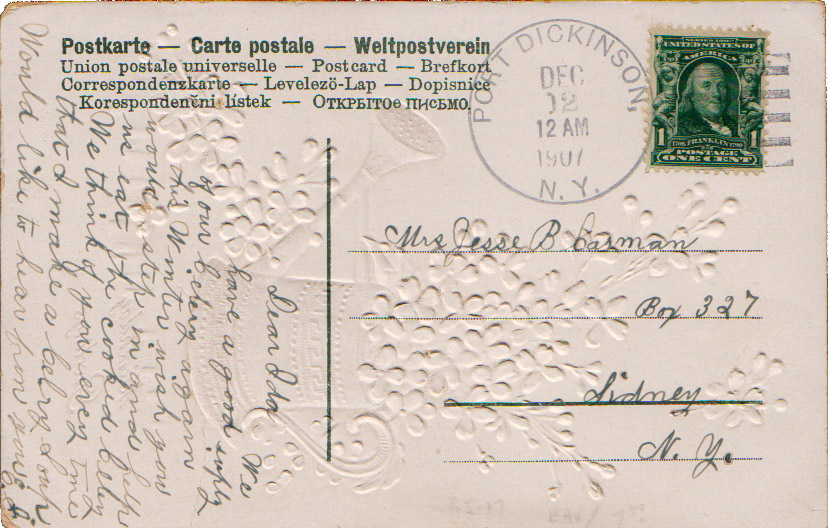 Postkarte — Carte postale — Weltpostverein
Union postale universelle — Postcard — Brefkort
Correspondenzkarte — Levelezö-Lap — Dopisnice
Korespondenčni listek — ОТКРЫТОЕ ПИСЬМО.
PORT DICKINSON,
DEC
12
12 AM
1907
N. Y.
SERIES 1902
UNITED STATES OF
AMERICA
1706 FRANKLIN 1790
1 1
POSTAGE
ONE CENT
Mrs Jesse B Carman
Box 327
Sidney
N. Y.
Dear Ida
We
have a good supply
of our celery again
this Winter wish you
would step in and help
us eat the cooked celery
We think of you every time
that I make a celery soup
Would like to hear from you